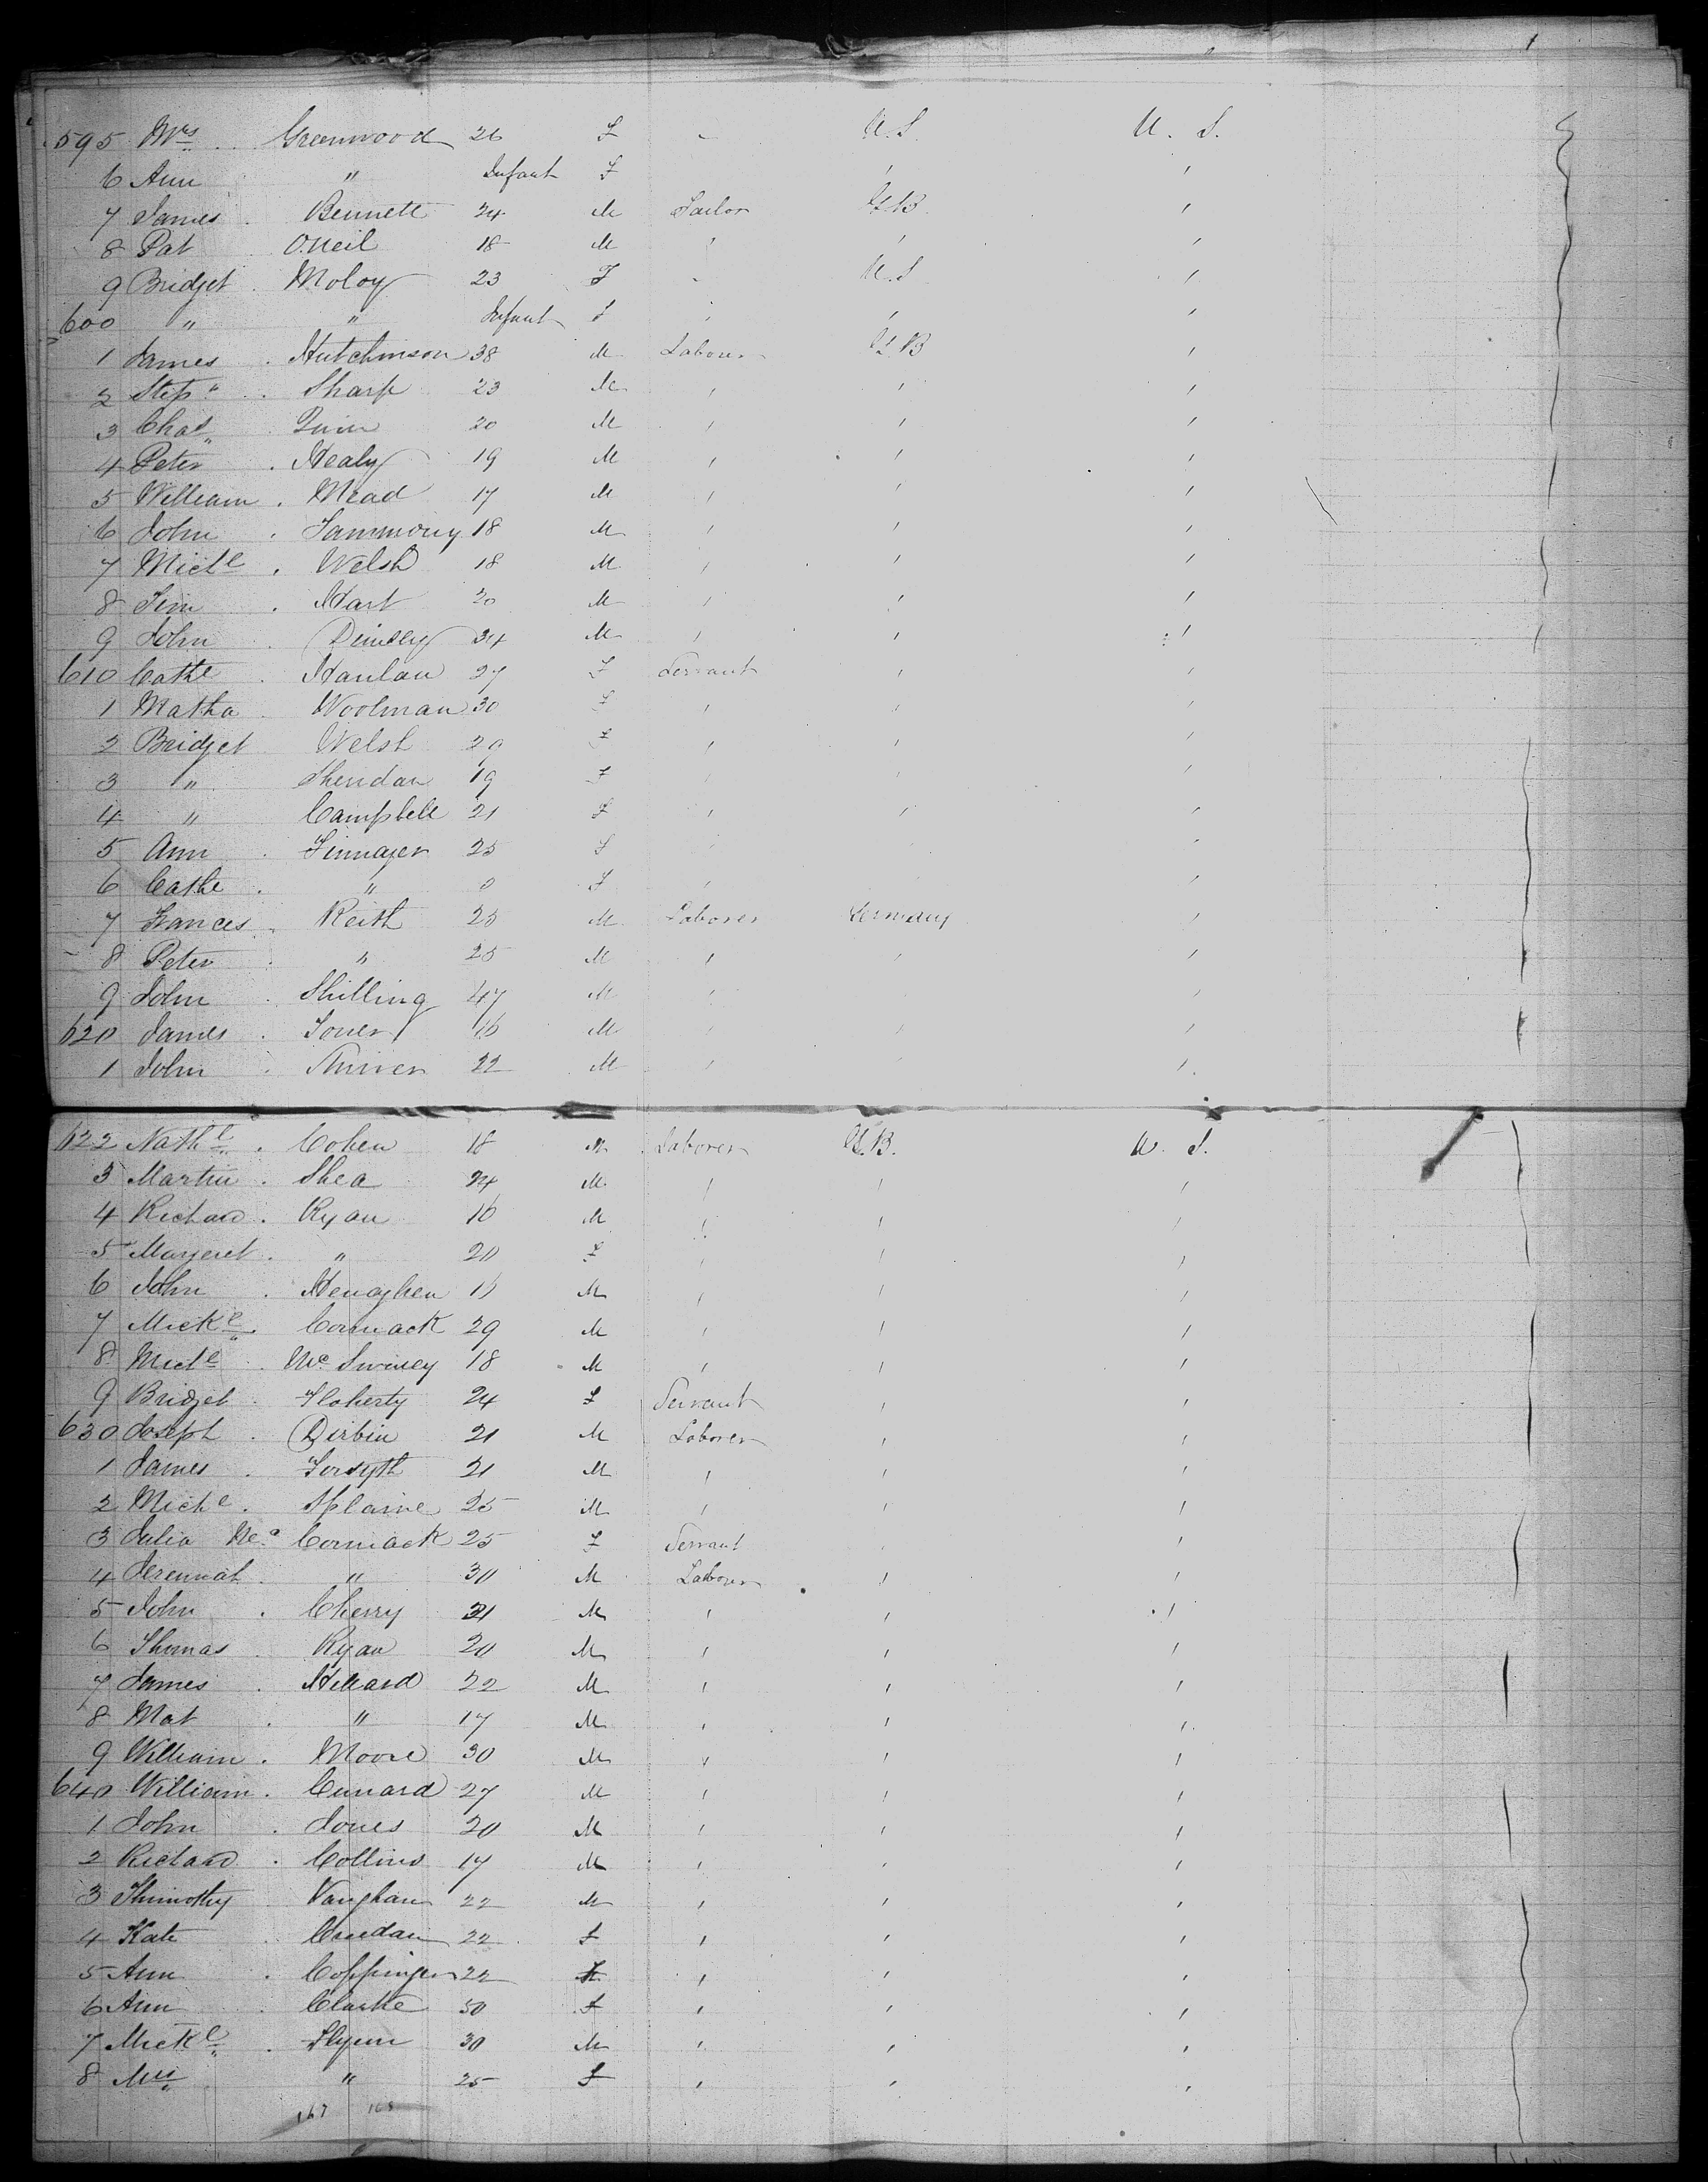 595 Mrs. Greenwood 26 F " U.S. U. S.
6 Ann " Infant F ' '
7 James Bennett 24 M Tailor G.B. '
8 Pat O.Neil 18 M ' ' '
9 Bridget Moloy 23 F " U.S '
600 " " Infant F ' ' '
1 James Hutchinson 38 M Laborer G.B '
2 Stepn Sharp 23 M ' ' '
3 Chas Quin 20 M ' ' '
4 Peter Healy 19 M ' ' '
5 William Mead 17 M ' ' '
6 John 18 M ' ' '
7 Michl Welsh 18 M ' ' '
8 Tim Hart 20 M ' ' '
9 John 34 M ' ' '
610 Cathe Hanlan 27 F Servant ' '
1 Matha Woolman 30 F ' ' '
2 Bridget Welsh 29 F ' ' '
3 " Sheridan 19 F ' ' '
4 " Campbell 21 F ' ' '
5 Ann 25 F '
6 Cathe " F ' '
7 Frances Keith 25 M Laborer Germany '
8 Peter " 25 M ' ' '
9 John Shilling 47 M ' '
620 James 16 M ' ' '
1 John 22 M ' ' '
622 Nathl Cohen 18 M Laborer G.B. U. S.
3 Martin Shea 24 M ' ' '
4 Richard Ryan 16 M ' ' '
5 Margeret " 20 F ' ' '
6 John Henaghen M ' ' '
7 Mickl Cormack 29 M ' ' '
8 Michl Mc Swiney 18 M ' ' '
9 Bridget Floherty 24 F Servant ' '
630 Joseph Dirbin 21 M Laborer ' '
1 James Forsyth 21 M ' ' '
2 Michl Splaine 25 M ' ' '
3 Julia Mc Cormack 25 F Servant ' '
4 Jeremiah " 30 M Laborer ' '
5 John Cherry 21 M ' ' '
6 Thomas Ryan 20 M ' ' '
7 James 22 M ' ' '
8 Mat " 17 M ' ' '
9 William Moore 30 M ' ' '
640 William Cunard 27 M ' ' '
1 John Jones 20 M ' ' '
2 Richard Collins 17 M ' ' '
3 Thimothy Vaughan 22 M ' ' '
4 Kate 22 F ' ' '
5 Ann Coppinger 22 F ' ' '
6 Ann Clarke 50 F ' ' '
7 Mickl Flynn 30 M ' ' '
8 Mrs " 25 F ' ' '
167 168